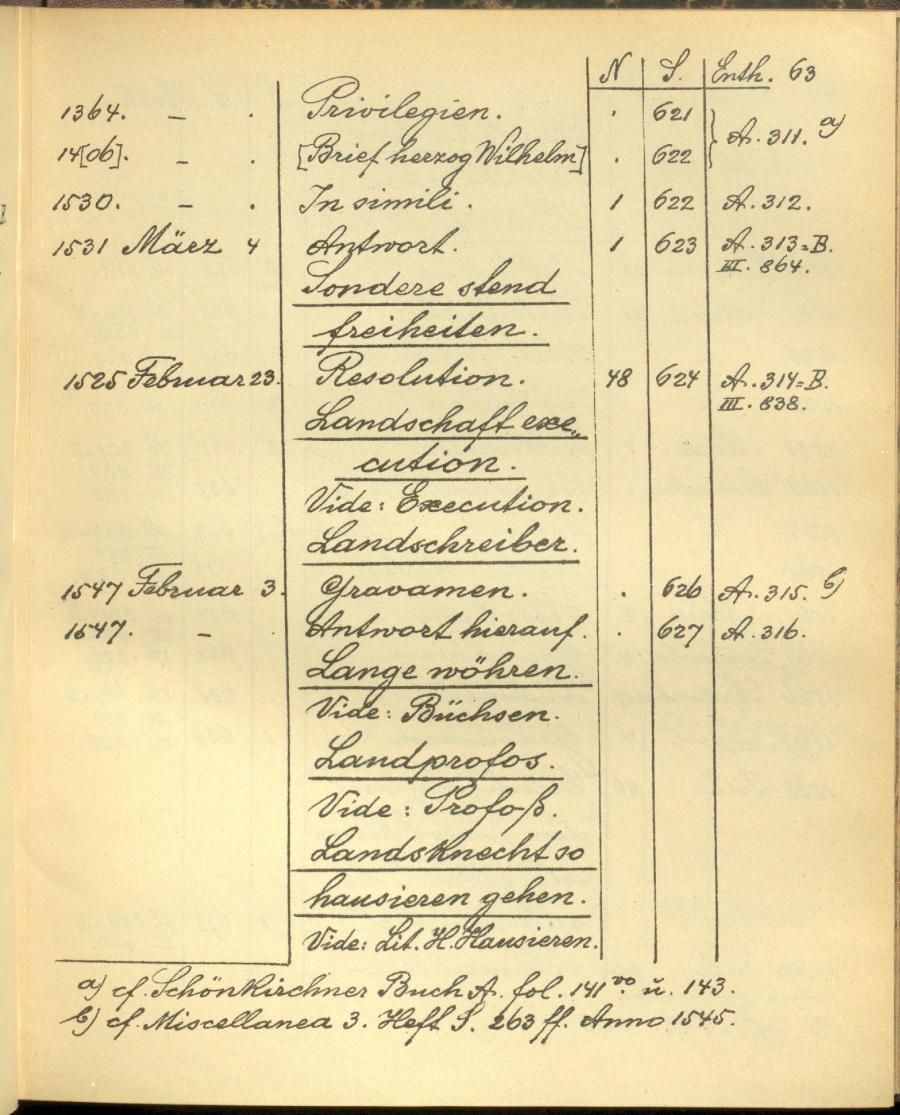 N S. Enth. 63
1364. – . Privilegien. . 621 } A. 311. a)
14[06]. – . [Brief herzog Wilhelm] . 622
1530. – . In simili. 1 622 A. 312.
1531 März 4 Antwort. 1 623 A. 313=B.
III. 864.
Sondere stend
freiheiten.
1525 Februar 23. Resolution. 48 624 A. 314=B.
III. 838.
Landschaft exe„
cution.
Vide: Execution.
Landschreiber.
1547 Februar 3. Gravamen. . 626 A. 315. b)
1547. – Antwort hierauf. . 627 A. 316.
Lange wöhren.
Vide: Büchsen.
Landprofos.
Vide: Profoß.
Landsknecht so
hausieren gehen.
Vide: Lit. H. Hausieren.
a) cf. Schönkirchner Buch A. fol. 141 vo. u. 143.
b) cf. Miscellanea 3. Heft S. 263 ff. Anno 1545.